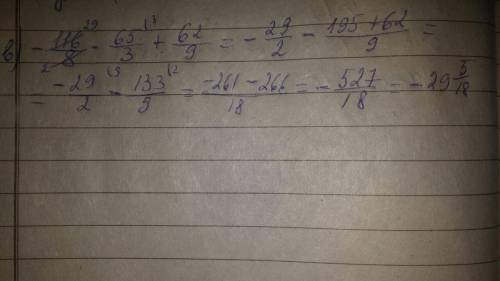 в) - 116²⁹/8₂ - 65/3 ⁽³ + 62/9 = - 29/2 - 195+62/9 =
= -29/2 ⁽⁹ - 133/9 ⁽² = -261-266/18 = - 527/18 = - 29 5/18